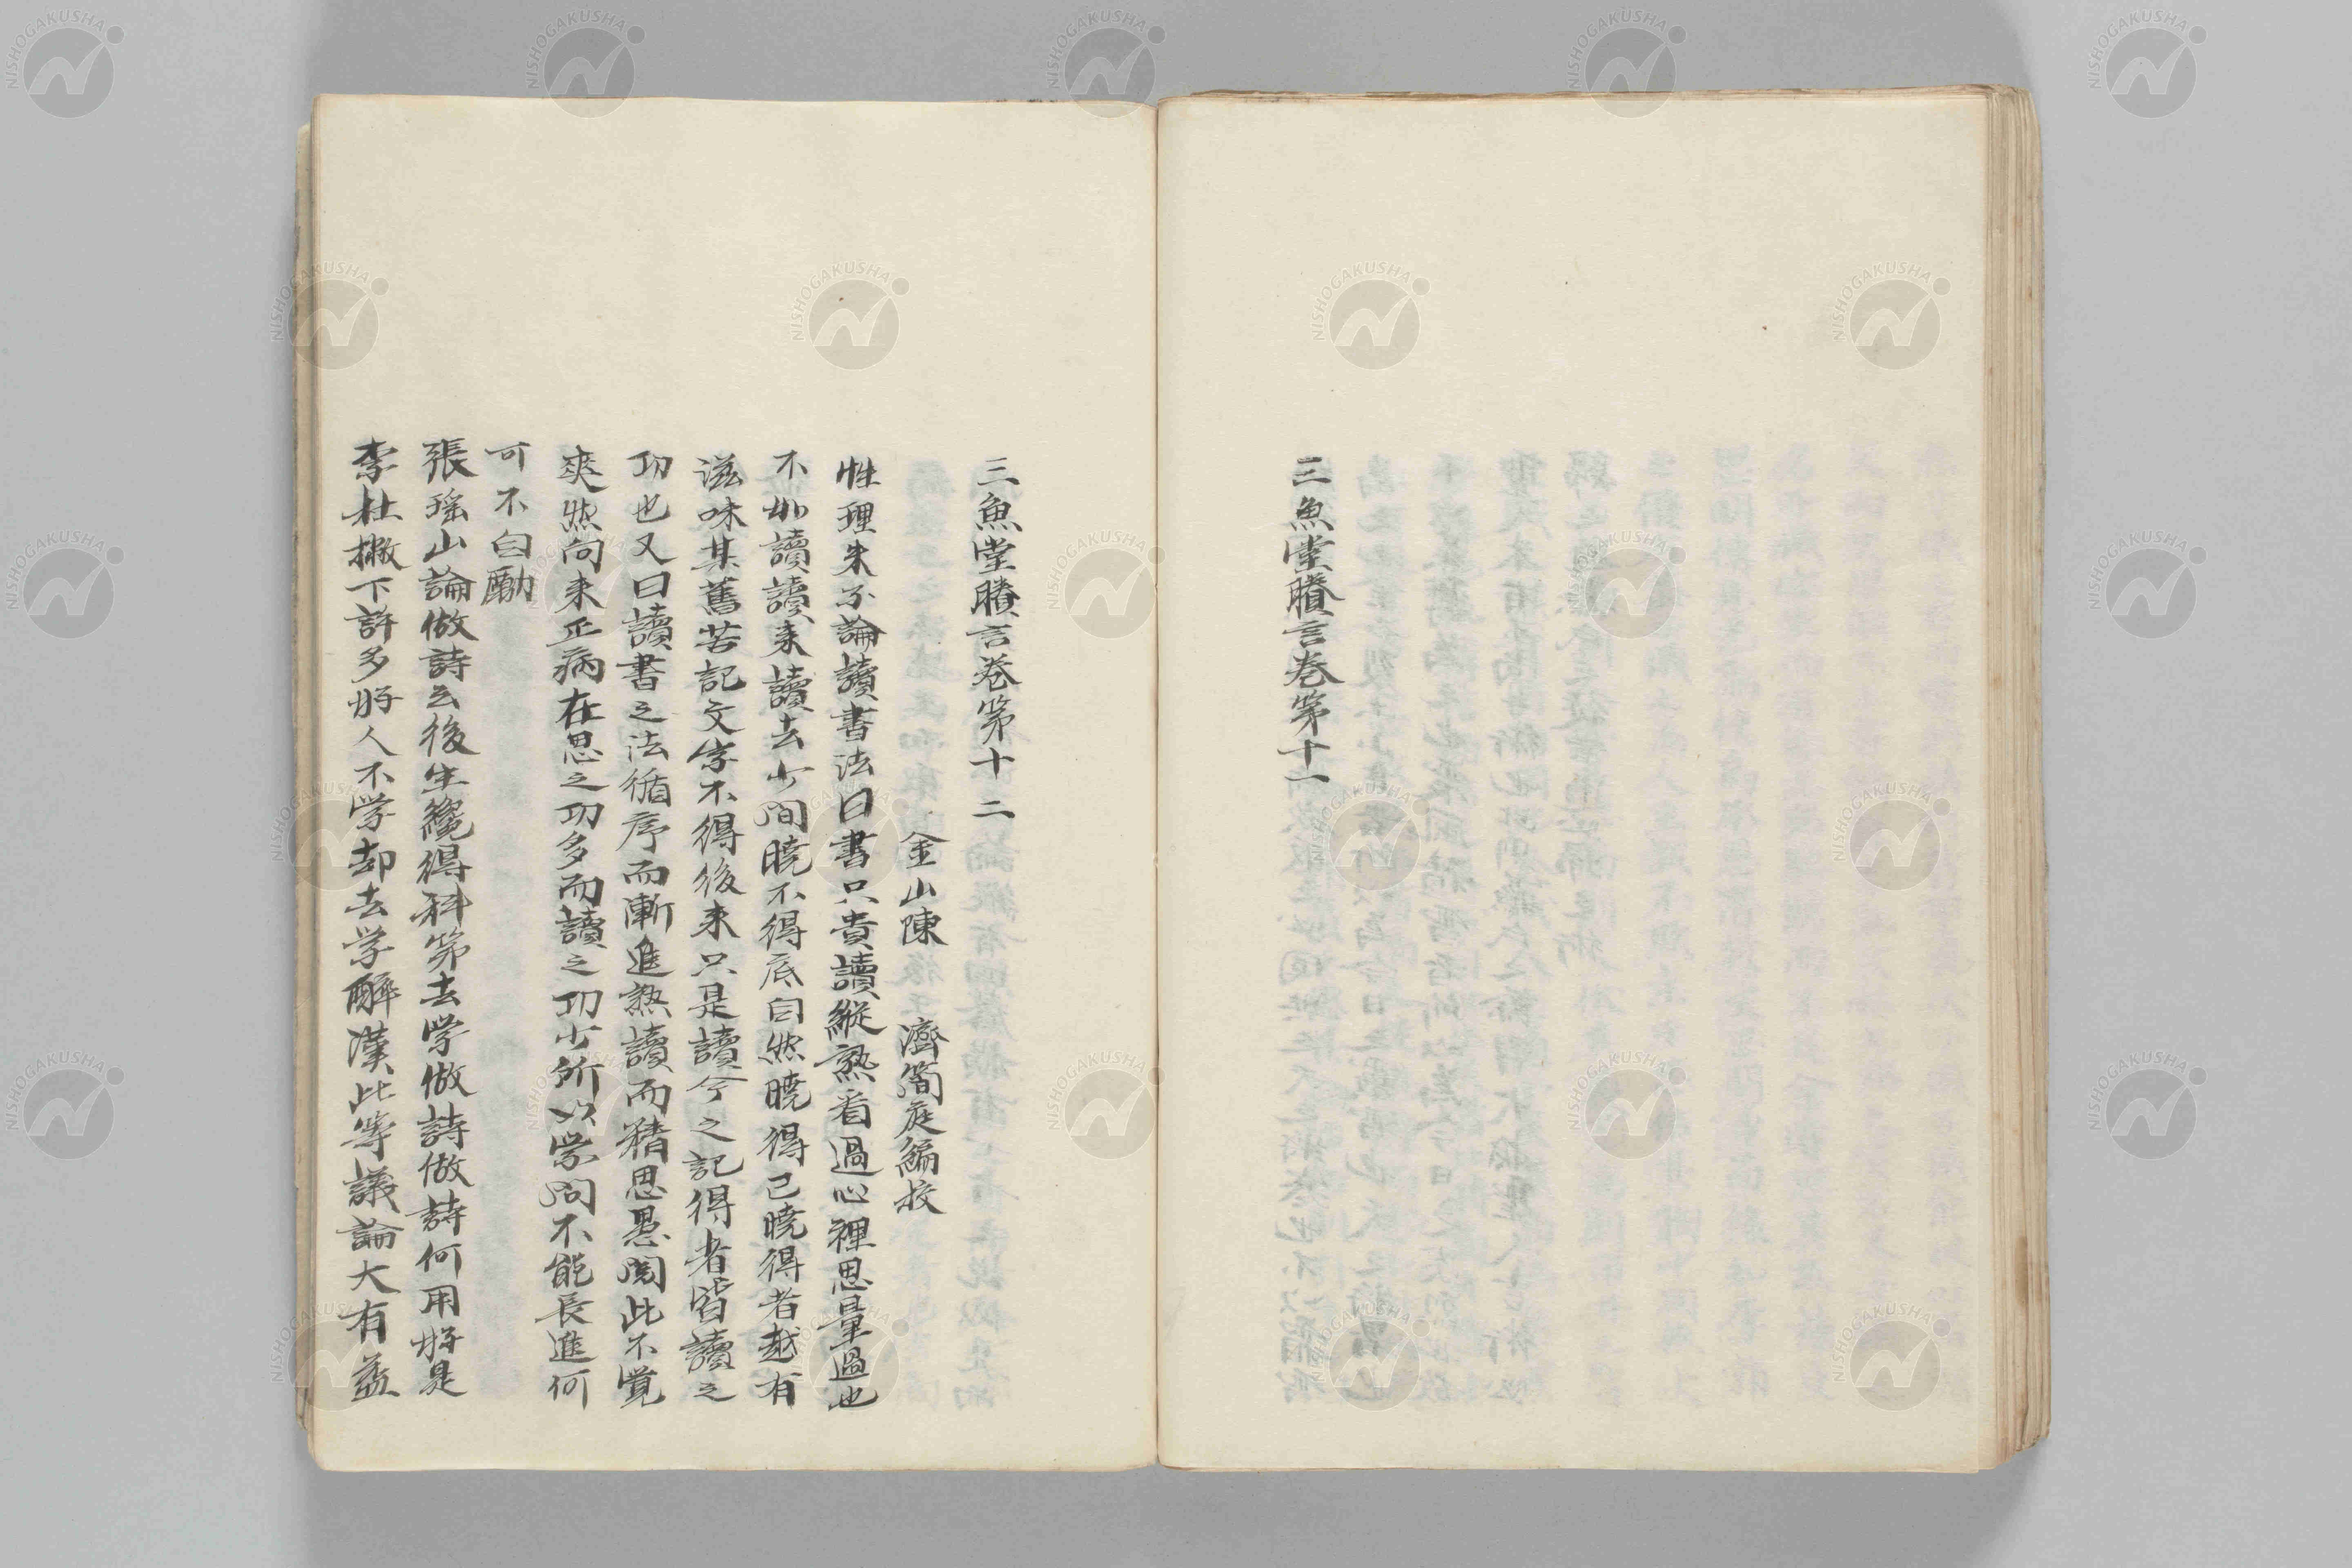 三魚堂賸言卷第十一
三魚堂賸言卷第十二
金山陳 濟簡庭編校
性理朱子論讀書法曰書只貴讀縱熟看過心裡思量過也
不如讀讀来讀去少間曉不得底自然曉得已曉得者越有
滋味某舊苦記文字不得後来只是讀今之記得者皆讀之
功也又曰讀書之法循序而漸進熟讀而精思愚閲此不覚
爽然向来正病在思之功多而讀之功少所以学問不能長進何
可不自勵
張瑶山論做詩云後生纔得科第去学做詩做詩何用好是
李杜撇下許多好人不学却去学醉漢此等議論大有益
NISHOGAKUSHA